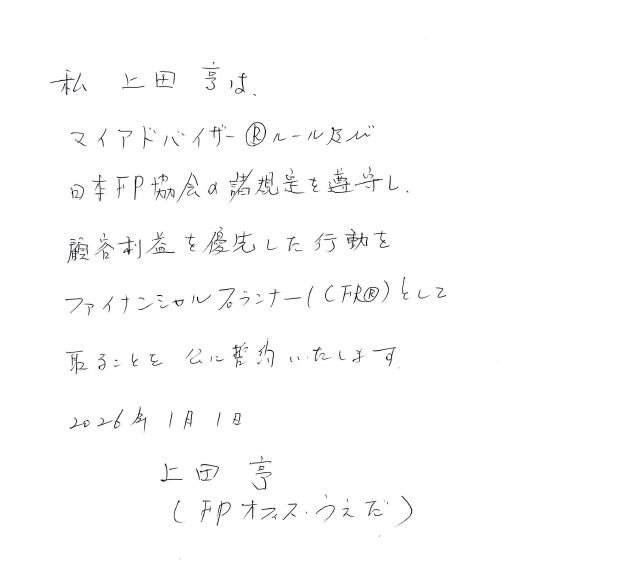 私 上田 亨は、
マイアドバイザー®ルール及び
日本FP協会の諸規定を遵守し、
顧客利益を優先した行動を
ファイナンシャルプランナー(CFP®)として
取ることを公に誓約いたします。
2026年 1月 1日
上田 亨
(FPオフィス・うえだ)